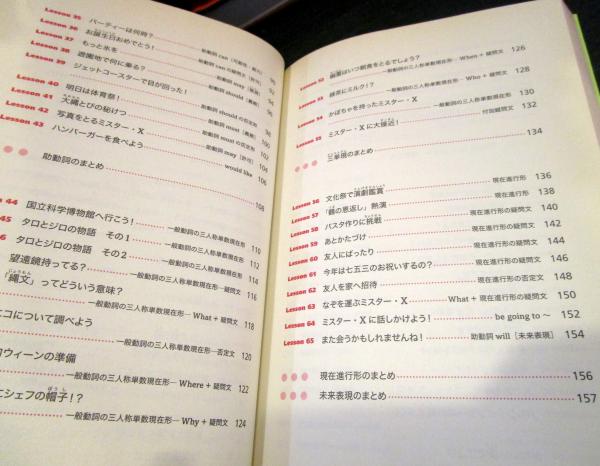 Lesson 35 パーティーは何時?
Lesson 36 お誕生日おめでとう!
Lesson 37 もっと氷を
Lesson 38 遊園地で何に乗る?
Lesson 39 ジェットコースターで目が回った!
Lesson 40 明日は体育祭! 助動詞 should
Lesson 41 大縄とびの秘けつ 助動詞 should の否定文 98
Lesson 42 写真をとるミスター・X 助動詞 must 100
Lesson 43 ハンバーガーを食べよう 助動詞 must の否定文 102
助動詞 may [許可] 104
would like 106
助動詞のまとめ 108
44 国立科学博物館へ行こう! 一般動詞の三人称単数現在形 110
45 タロとジロの物語 その1 一般動詞の三人称単数現在形 112
6 タロとジロの物語 その2 一般動詞の三人称単数現在形 114
望遠鏡持ってる? 一般動詞の三人称単数現在形─疑問文 116
「縄文」ってどういう意味? 一般動詞の三人称単数現在形─ What + 疑問文 118
エコについて調べよう 一般動詞の三人称単数現在形─否定文 120
ロウィーンの準備 一般動詞の三人称単数現在形─ Where + 疑問文 122
にシェフの帽子!? 一般動詞の三人称単数現在形─ Why + 疑問文 124
Lesson 52 はいつ朝食をとるでしょう?
一般動詞の三人称単数現在形─ When + 疑問文 126
Lesson 53 緑茶にミルク!?
一般動詞の三人称単数現在形─ Who + 疑問文 128
Lesson 54 かぼちゃを持ったミスター・X
一般動詞の三人称単数現在形─ How + 疑問文 130
Lesson 55 ミスター・Xに大接近! 付加疑問文 132
三単現のまとめ 134
Lesson 56 文化祭で演劇鑑賞 現在進行形 136
Lesson 57 「鶴の恩返し」熱演 現在進行形 138
Lesson 58 パスタ作りに挑戦 現在進行形の疑問文 140
Lesson 59 あとかたづけ 現在進行形の疑問文 142
Lesson 60 友人にばったり 現在進行形の疑問文 144
Lesson 61 今年は七五三のお祝いするの? 現在進行形の疑問文 146
Lesson 62 友人を家へ招待 現在進行形の否定文 148
Lesson 63 なぞを運ぶミスター・X What + 現在進行形の疑問文 150
Lesson 64 ミスター・Xに話しかけよう! be going to 〜 152
Lesson 65 また会うかもしれませんね! 助動詞 will [未来表現] 154
現在進行形のまとめ 156
未来表現のまとめ 157